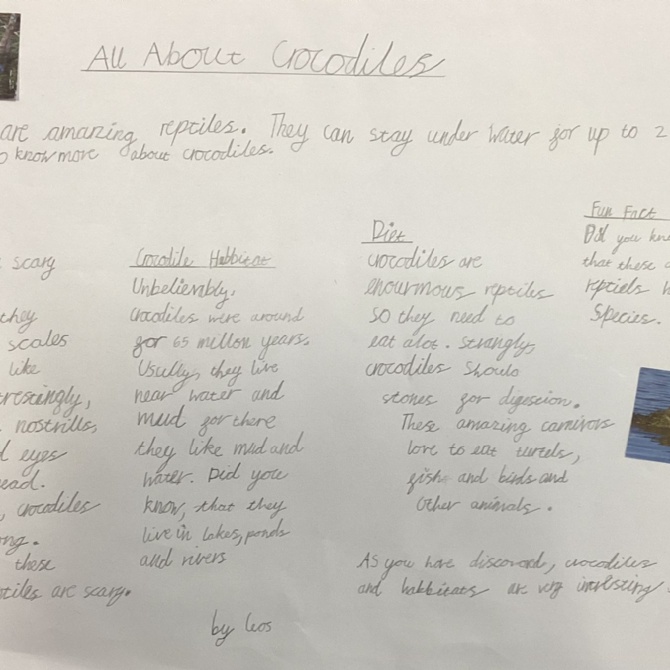 All About Crocodiles
are amazing reptiles. They can stay under water for up to 2
know more about crocodiles.
scary
they
scales
like
nostrills,
eyes
ead.
, crocodiles
ong.
these
ptiles are scary.
Crocodile Habbitat
Unbelienbly,
crocodiles were around
for 65 millon years.
Usully, they live
near water and
mud for there
they like mud and
water. Did you
know, that they
live in lakes, ponds
and rivers
Diet
crocodiles are
enourmous reptiles
so they need to
eat alot. Strangly,
crocodiles should
stones for digestion.
These amazing carnivors
love to eat turtels,
fish and birds and
other animals.
Fun Fact
Did you kn
that these
reptiels h
species.
As you have discovered, crocodiles
and habbitats are very intresting
by Leos